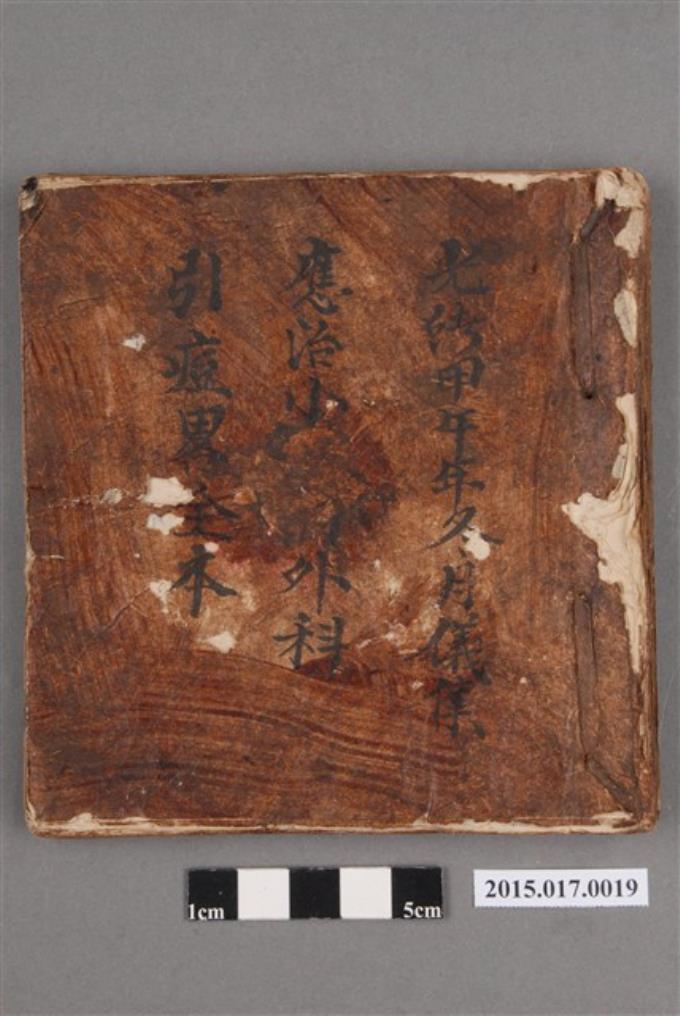 光緒甲午年冬月儀集
應治小 外科
引痘畧全本
1cm 5cm
2015.017.0019